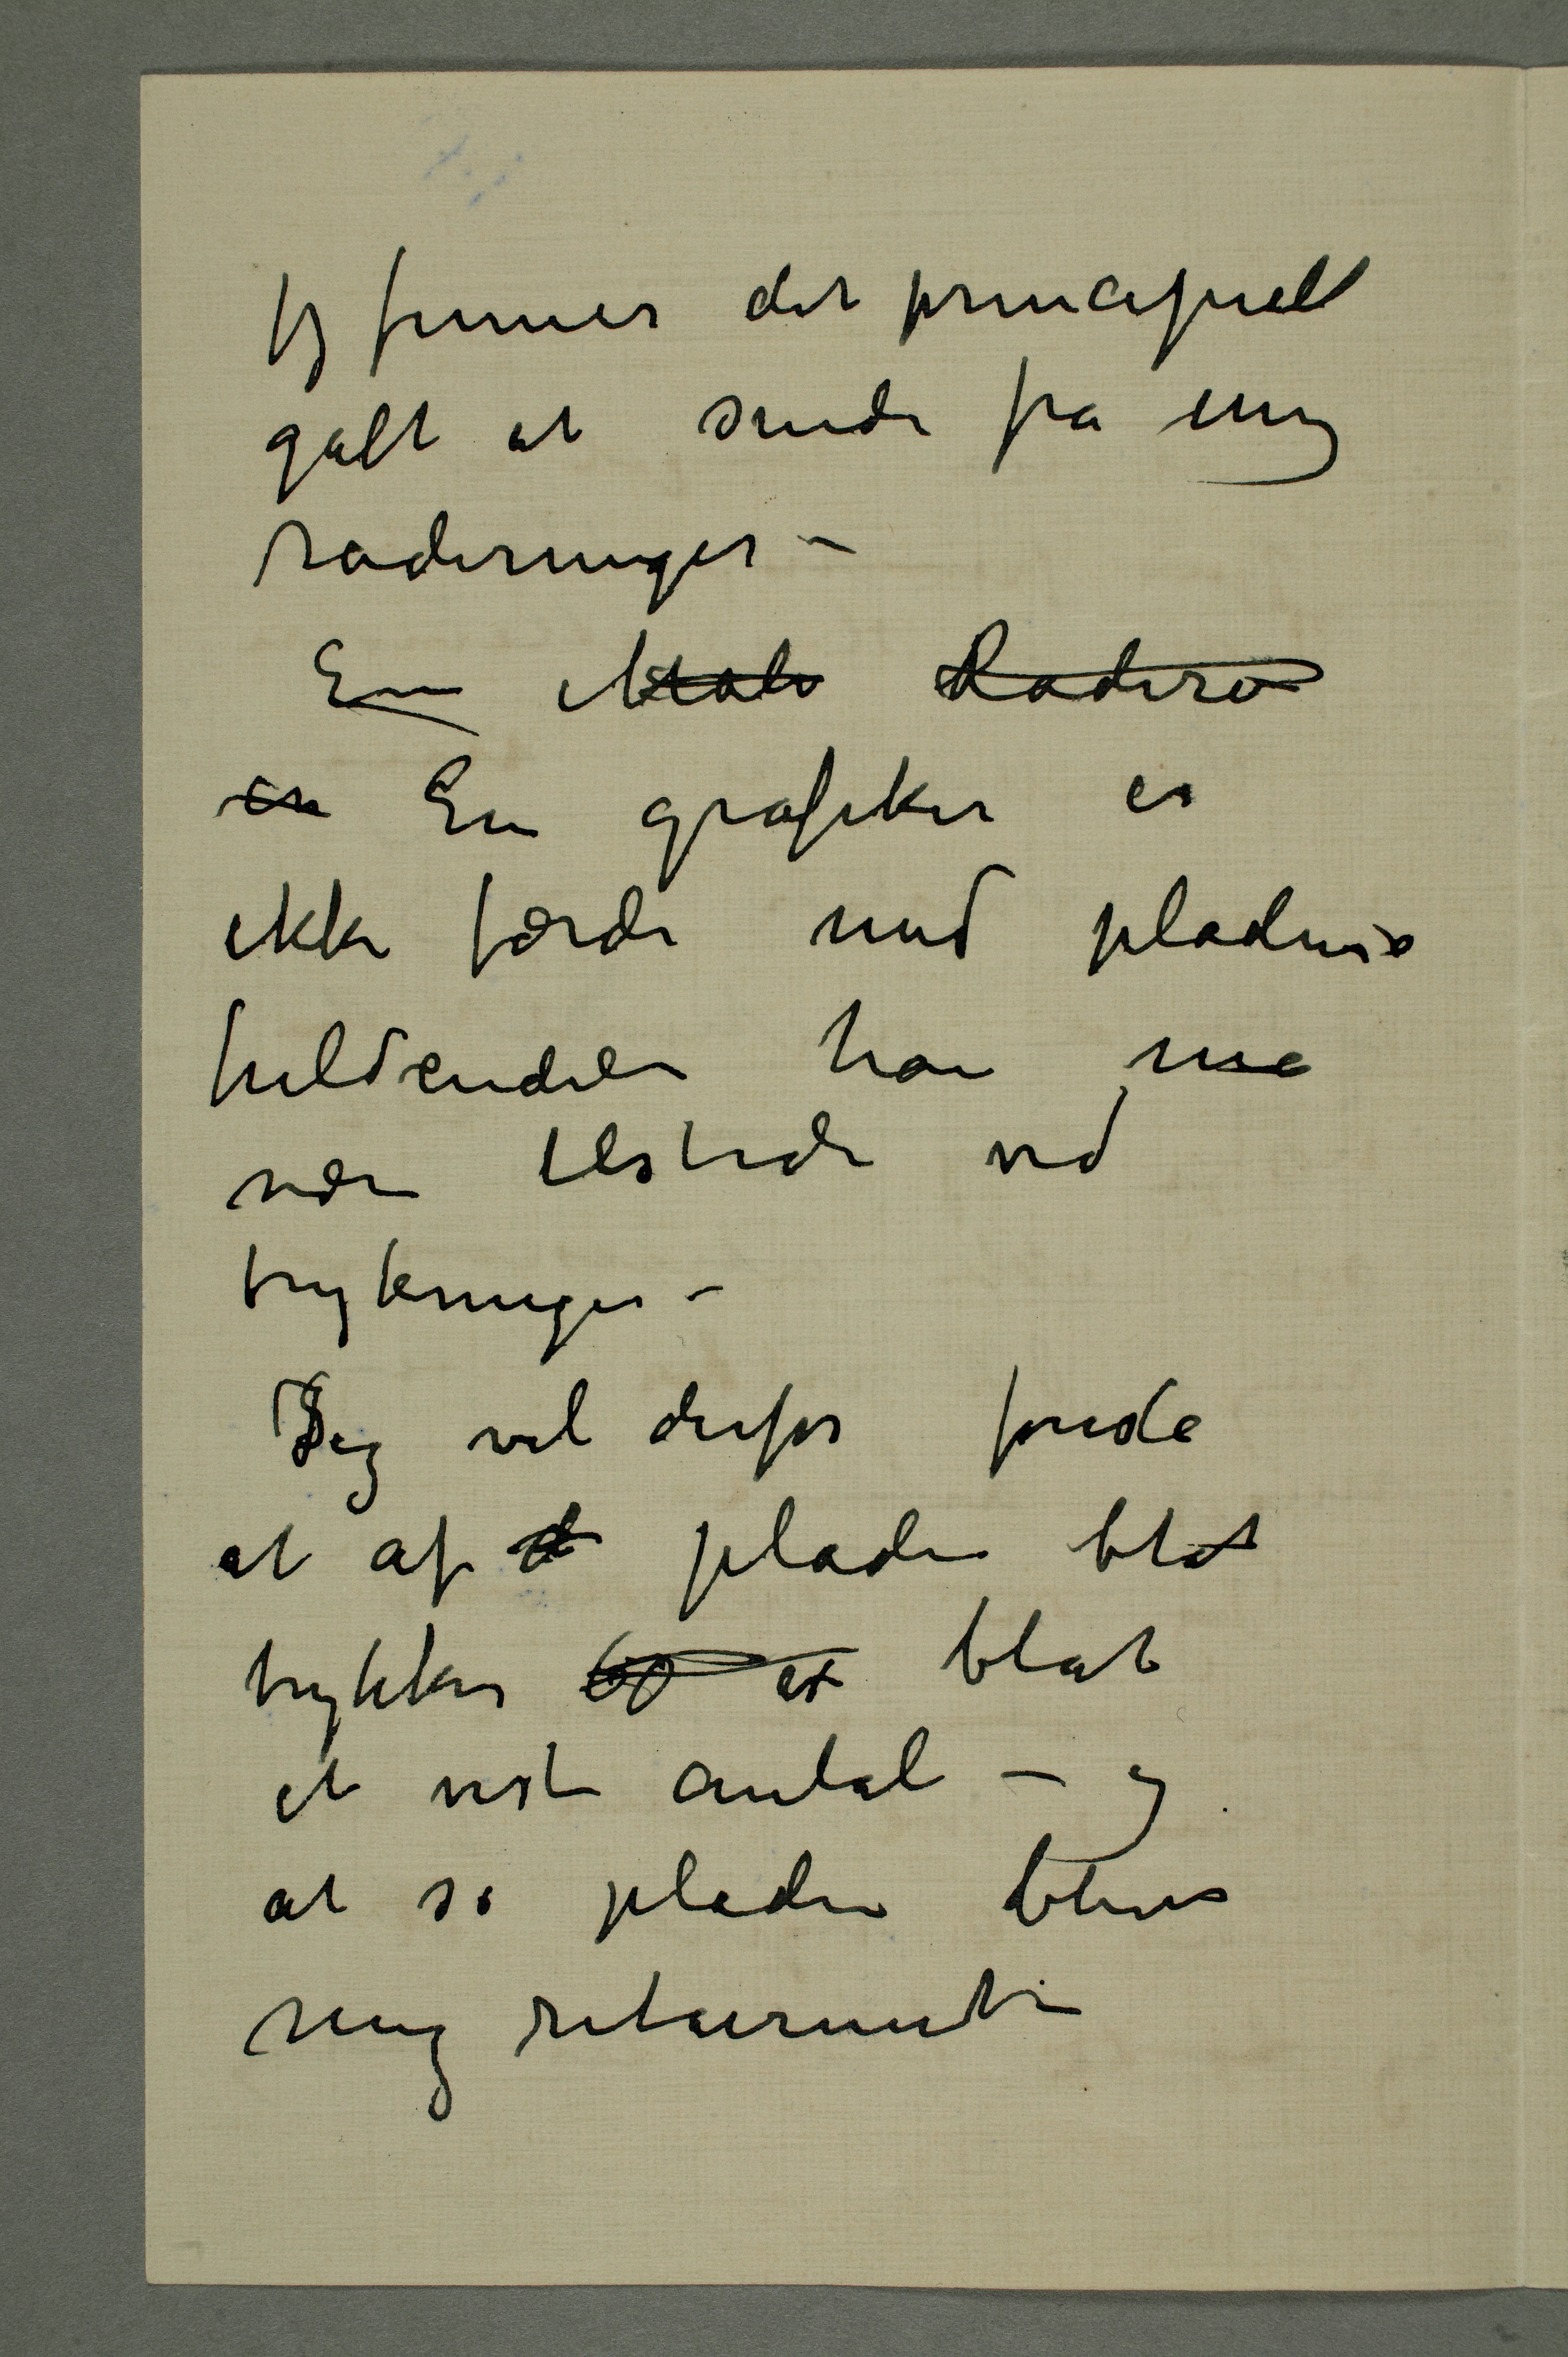 Jeg finner det principielt
galt at sende fra mig
raderinger –
En Maler Raderer
en En grafiker er
ikke færdi med pladens
fuldendelse han må
være tilstede ved
trykninger –
Jeg vil derfor
at af d pladen blot
trykkes 60 ex blot
et vist antal – og
at så pladen blir
mig returneret